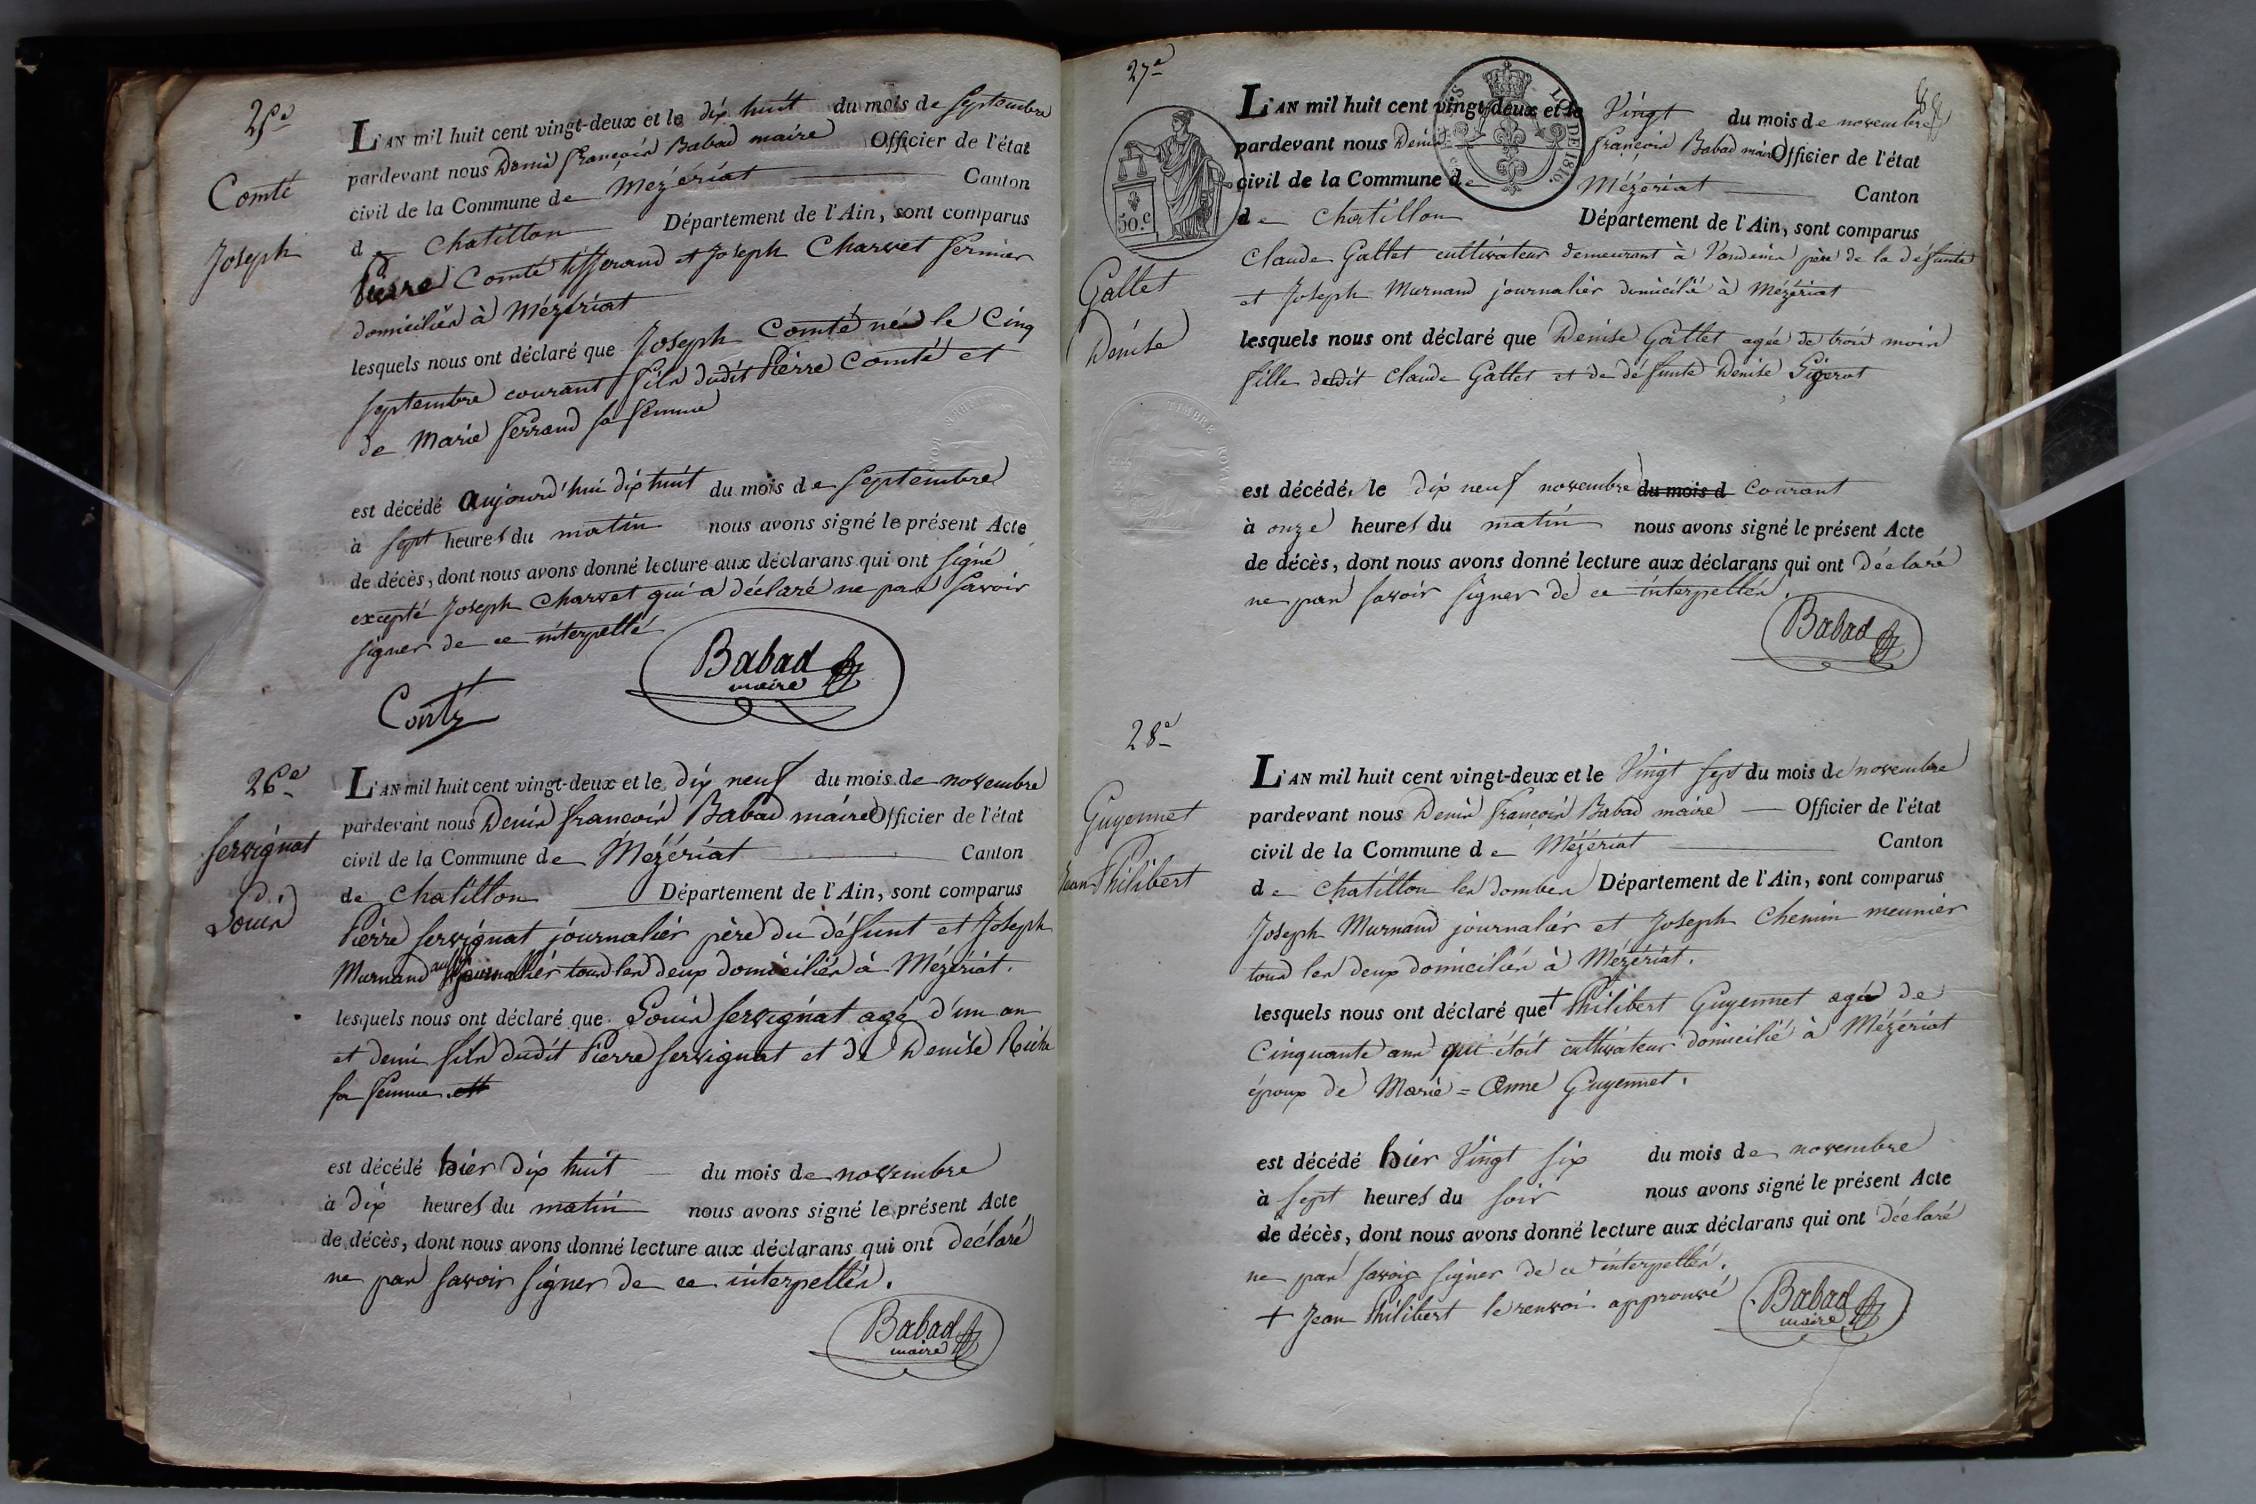 25e
Comté
Joseph
L'AN mil huit cent vingt-deux et le dix huit du mois de septembre
pardevant nous Denis françois Babad maire Officier de l'état
civil de la Commune de Mézériat Canton
de Chatillon Département de l'Ain, sont comparus
Pierre Comté tisserand et Joseph Charvet fermier
domiciliés à Mézériat
lesquels nous ont déclaré que Joseph Comté né le Cinq
septembre courant fils dudit Pierre Comté et
de Marie ferrand sa femme
est décédé aujourd'hui dix huit du mois de septembre
à sept heures du matin nous avons signé le présent Acte
de décès, dont nous avons donné lecture aux déclarans qui ont signé
excepté Joseph Charvet qui a déclaré ne pas savoir
signer de ce interpellé
Babad
maire
26e
servignat
Louis
L'AN mil huit cent vingt-deux et le dix neuf du mois de novembre
pardevant nous Denis françois Babad maire Officier de l'état
civil de la Commune de Mézériat Canton
de Chatillon Département de l'Ain, sont comparus
Pierre servignat journalier père du défunt et Joseph
Murnand aussi journalier tous les deux domiciliés à Mézériat.
lesquels nous ont déclaré que Louis servignat agé d'un an
et demi fils dudit Pierre servignat et de Denise
sa femme
est décédé hier dix huit du mois de novembre
à dix heures du matin nous avons signé le présent Acte
de décès, dont nous avons donné lecture aux déclarans qui ont déclaré
ne pas savoir signer de ce interpellés.
Babad
maire
27e
50.c
DE 1816.
TIMBRE ROYAL
Gallet
Denise
L'AN mil huit cent vingt-deux et le Vingt du mois de novembre
pardevant nous Denis françois Babad maire Officier de l'état
civil de la Commune de Mézériat Canton
de Chatillon Département de l'Ain, sont comparus
Claude Gallet cultivateur demeurant à Vandeins père de la défunte
et Joseph Murnand journalier domicilié à Mézériat
lesquels nous ont déclaré que Denise Gallet agée de trois mois
fille dudit Claude Gallet et de défunte Denise
est décédé, le dix neuf novembre du mois d courant
à onze heures du matin nous avons signé le présent Acte
de décès, dont nous avons donné lecture aux déclarans qui ont déclaré
ne pas savoir signer de ce interpellés.
Babad
28e
Guyennet
Jean Philibert
L'AN mil huit cent vingt-deux et le Vingt sept du mois de novembre
pardevant nous Denis françois Babad maire Officier de l'état
civil de la Commune de Mézériat Canton
de Chatillon les dombes Département de l'Ain, sont comparus
Joseph Murnand journalier et Joseph Chemin meunier
tous les deux domiciliés à Mézériat.
lesquels nous ont déclaré que + Philibert Guyennet agé de
Cinquante ans qui étoit cultivateur domicilié à Mézériat
époux de Marie=Anne Guyennet.
est décédé hier Vingt six du mois de novembre
à sept heures du soir nous avons signé le présent Acte
de décès, dont nous avons donné lecture aux déclarans qui ont déclaré
ne pas savoir signer de ce interpellés.
+ Jean Philibert le renvoi approuvé
Babad
maire